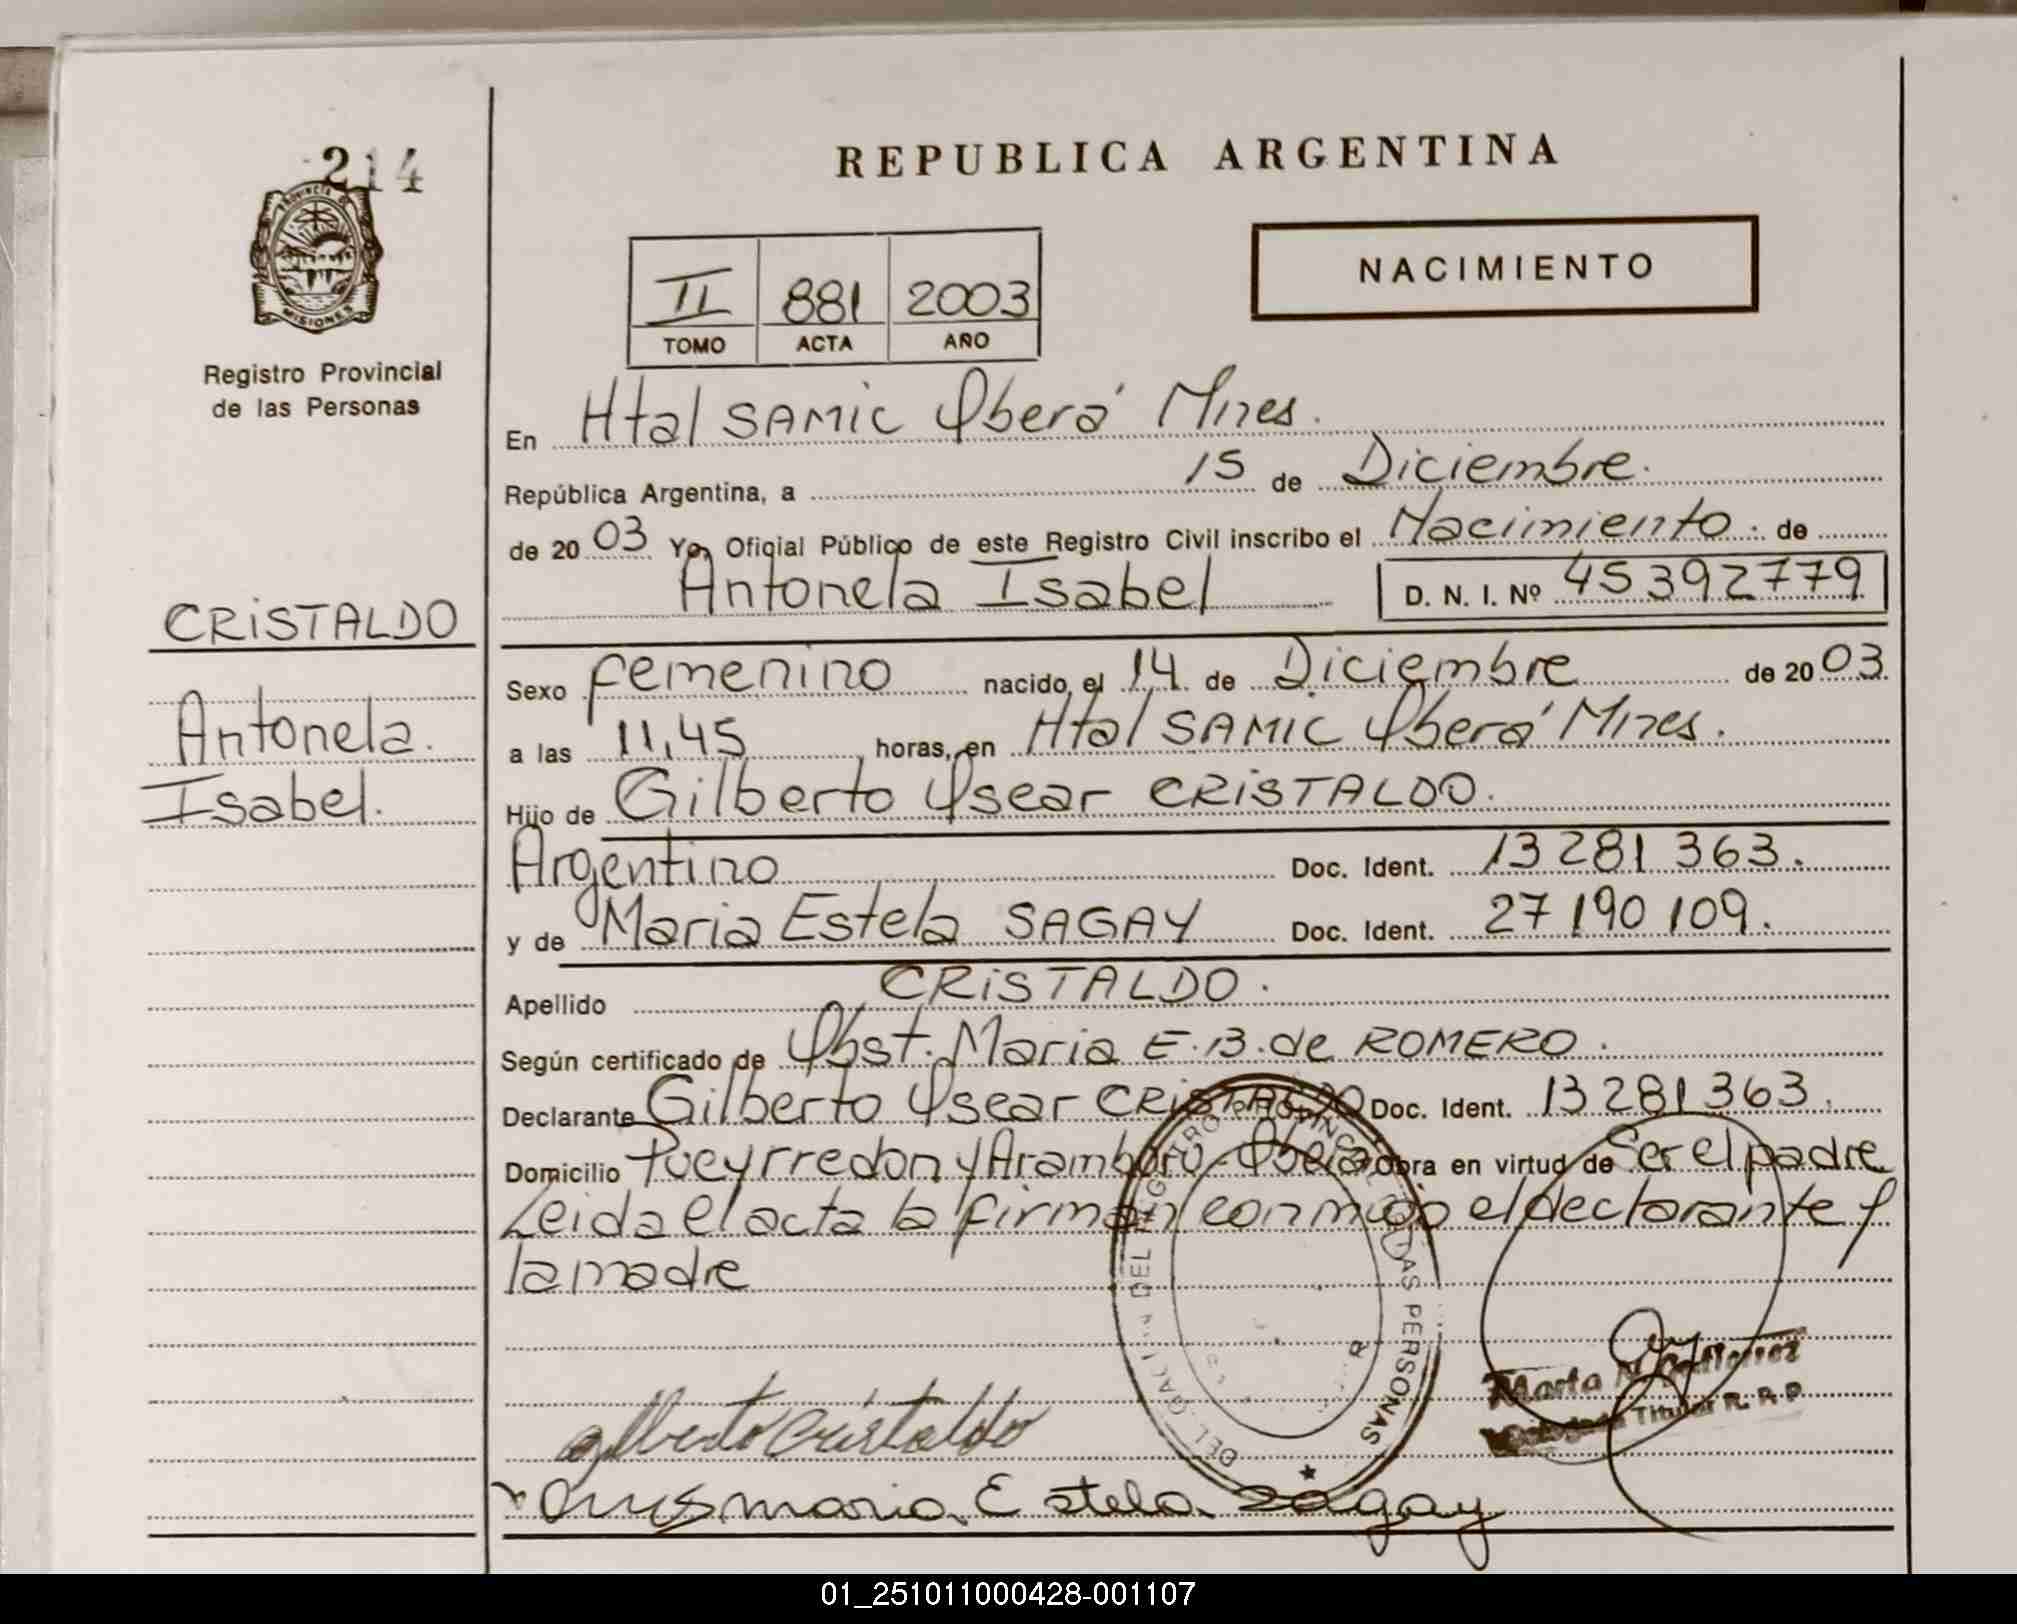 214
PROVINCIA DE
MISIONES
Registro Provincial
de las Personas
CRISTALDO
Antonela.
Isabel.
REPUBLICA ARGENTINA
NACIMIENTO
II 881 2003
TOMO ACTA AÑO
En Htal SAMIC Oberá Mnes.
República Argentina, a 15 de Diciembre.
de 2003 Yo, Oficial Público de este Registro Civil inscribo el Nacimiento. de
Antonela Isabel D. N. I. Nº 45392779
Sexo femenino nacido el 14 de Diciembre de 2003.
a las 11,45 horas, en Htal SAMIC Oberá Mnes.
Hijo de Gilberto Osear CRISTALDO.
Argentino Doc. Ident. 13 281 363.
y de Maria Estela SAGAY Doc. Ident. 27 190 109.
Apellido CRISTALDO.
Según certificado de Obst. Maria E. B. de ROMERO.
Declarante Gilberto Osear CRISTALDO Doc. Ident. 13 281 363.
Domicilio Pueyrredon y Aramburu - Oberá Obra en virtud de Ser el padre
Leida el acta la firman conmigo el declarante y
la madre
DEL REGISTRO PROVINCIAL DE LAS PERSONAS
gilberto cristaldo
maria Estela Sagay
Marta N. Gutierrez
Titular R. P. P.
01_251011000428-001107